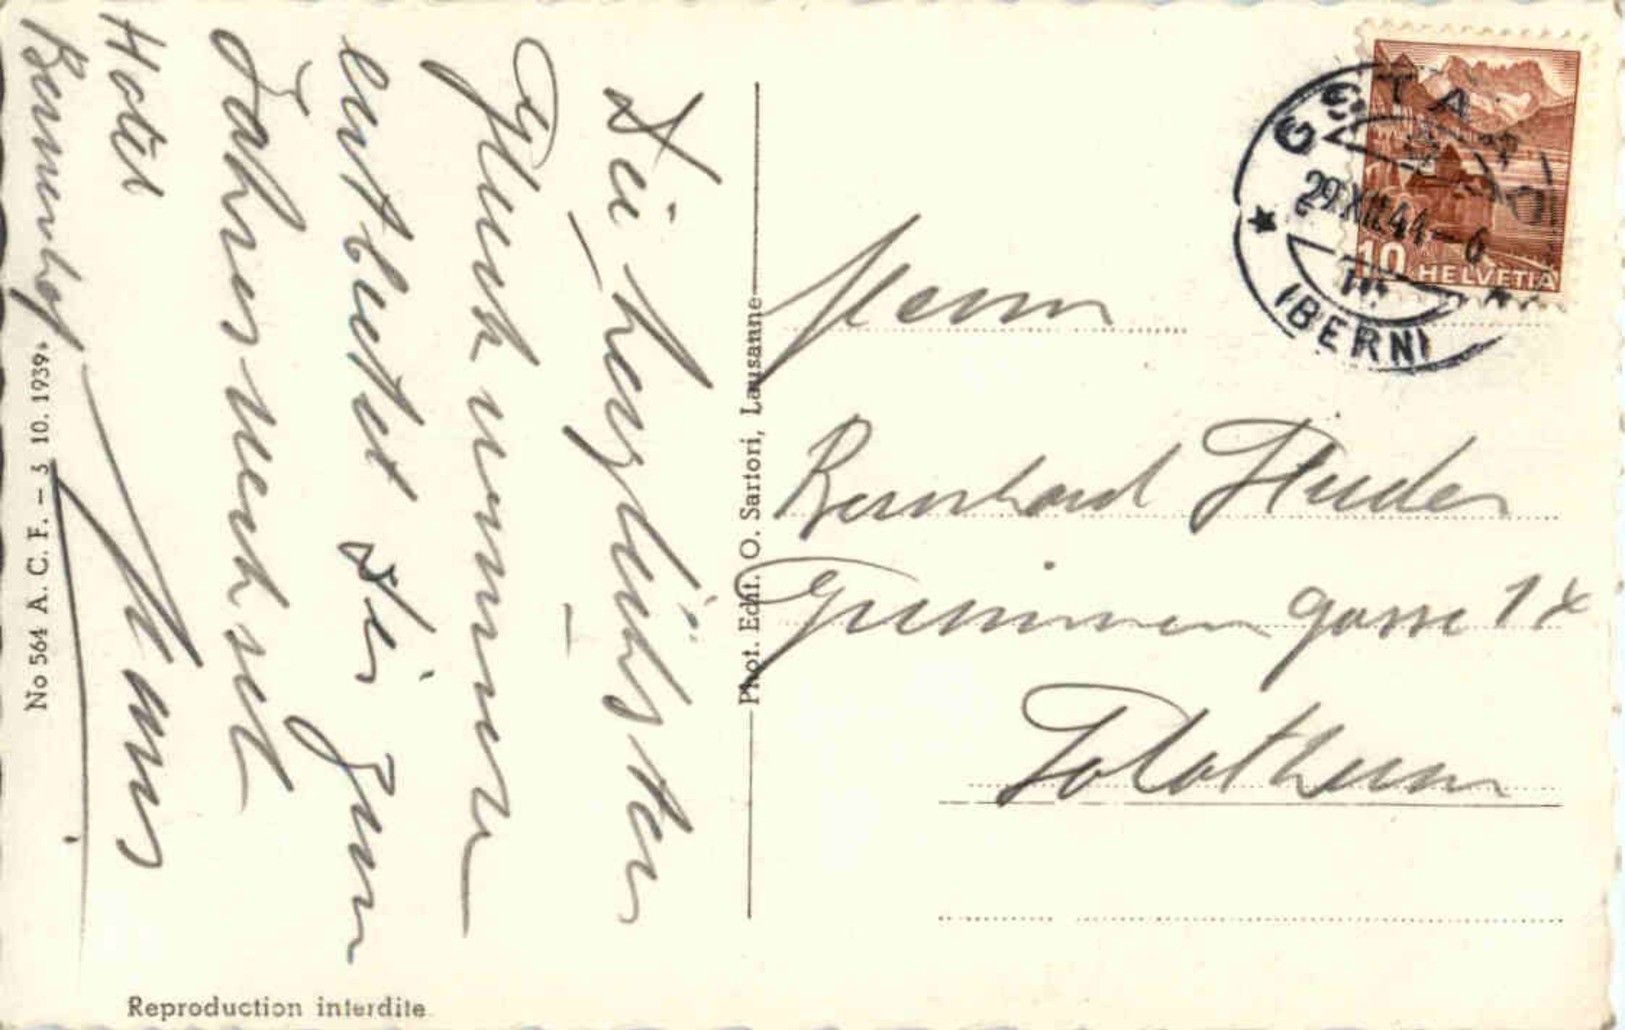 Die herzlichsten
Glückwünsche
entbietet Dir zum
Jahreswechsel
Hans
Hotel
Bernerhof
No 564 A. C. F. – 3 10. 1939.
Reproduction interdite
Phot. Edit. O. Sartori, Lausanne
GSTAAD
29.XII.44–6
(BERN)
10 HELVETIA
Herrn
Bernhard Studer
gasse 1
Solothurn